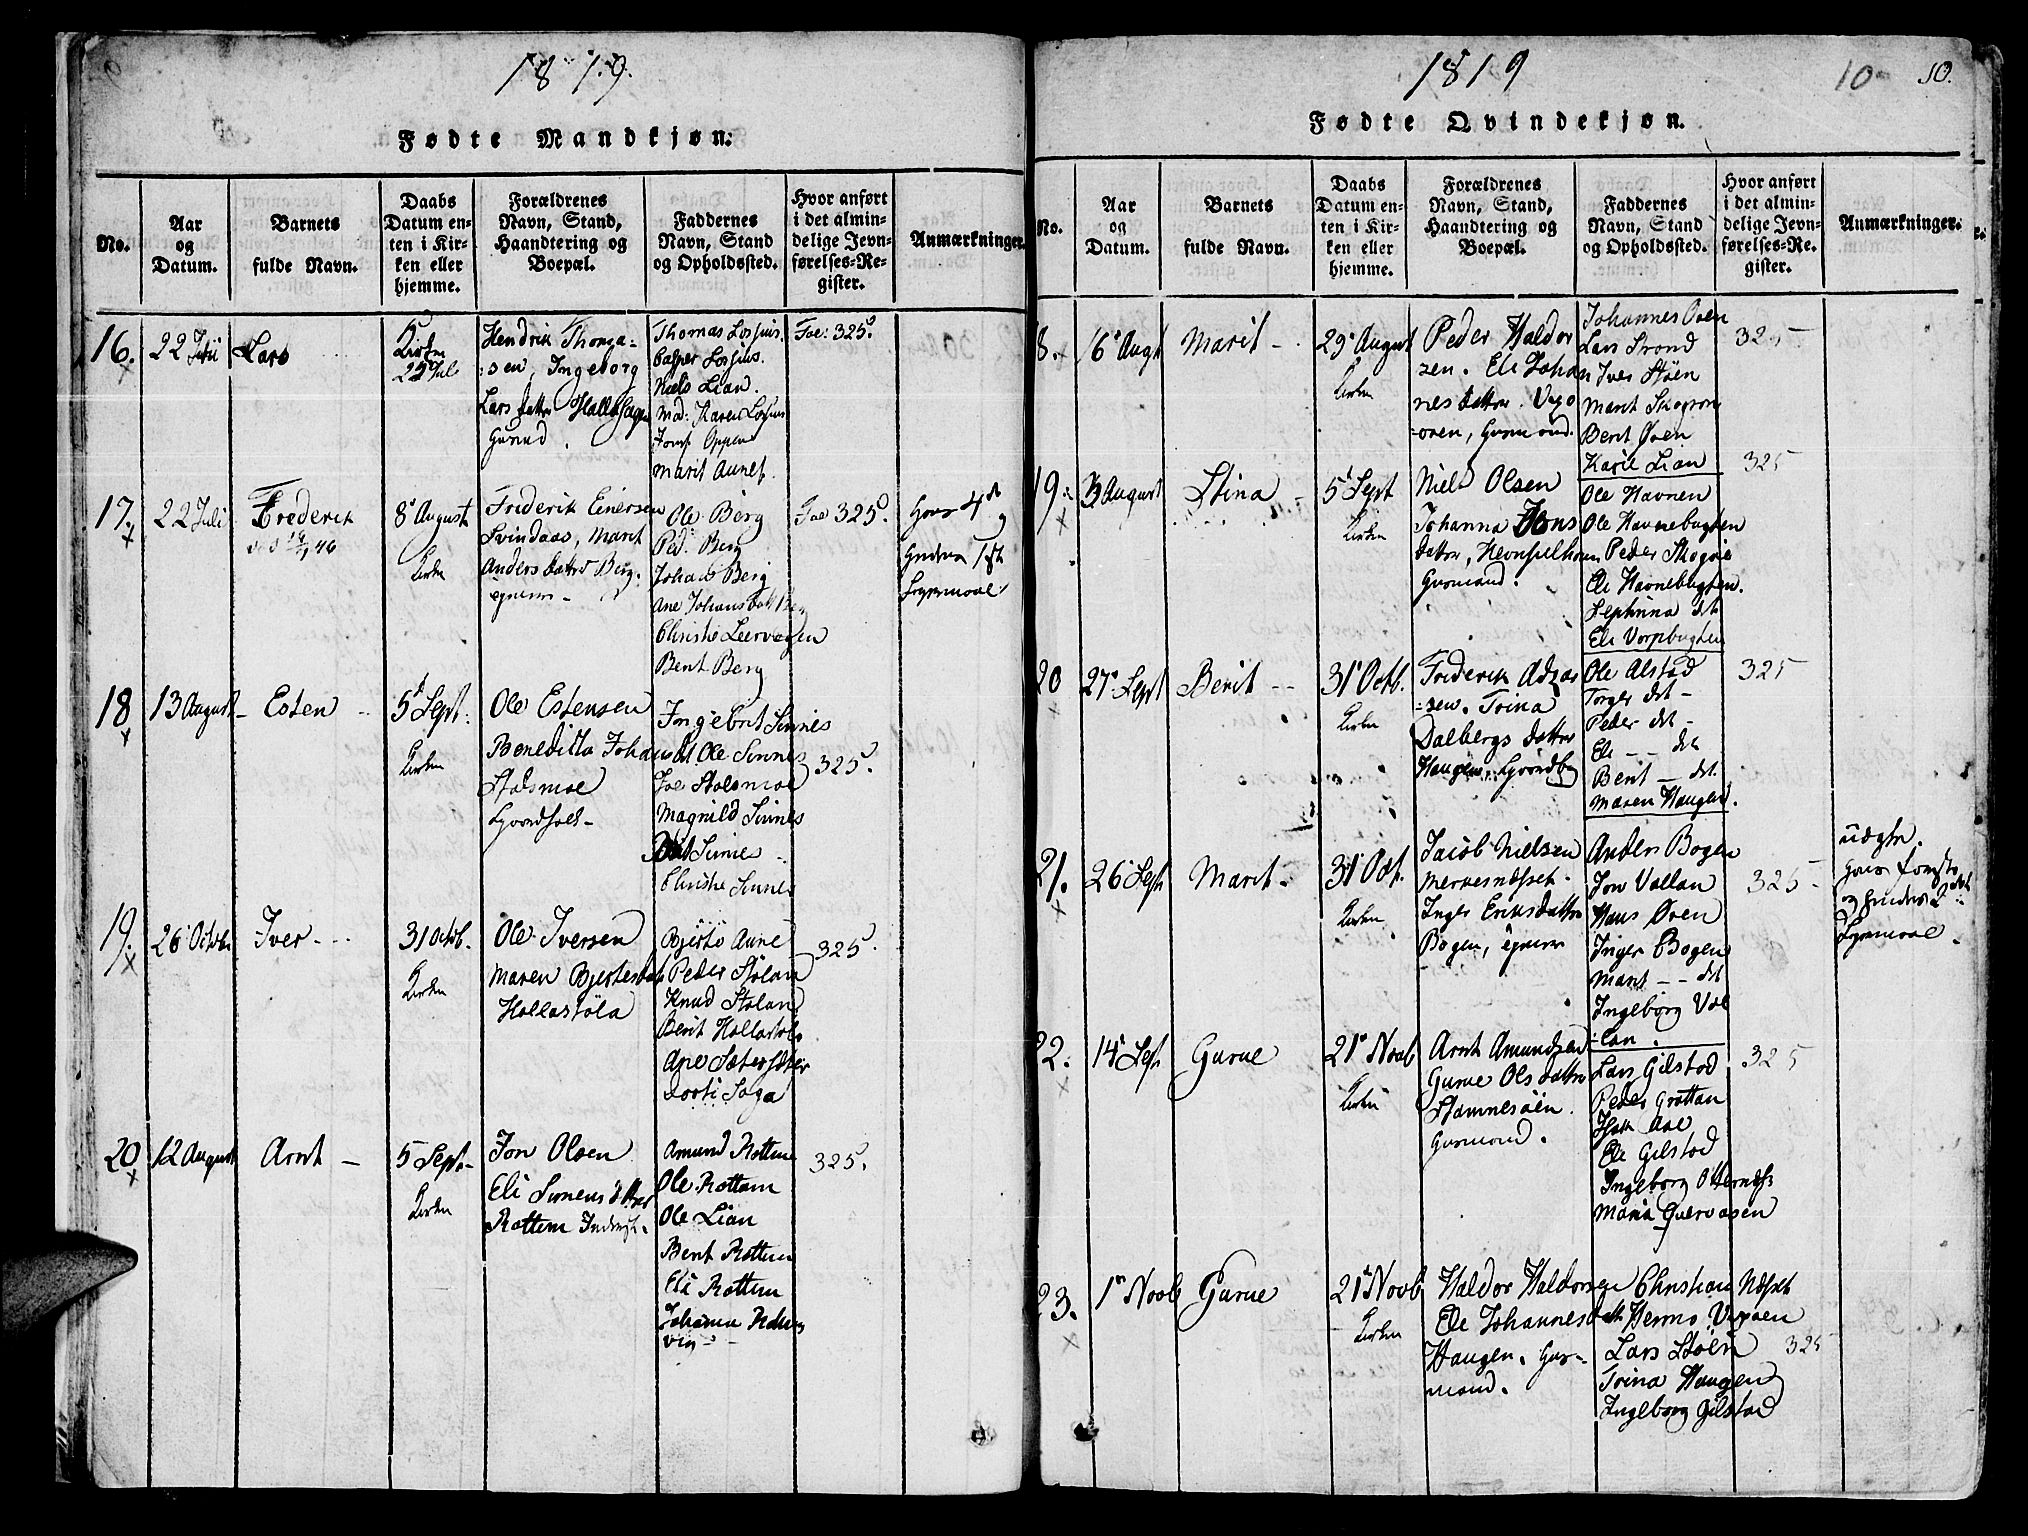 1819.
Fødte Mandkjøn:
No.
Aar
og
Datum.
Barnets
fulde Navn.
Daabs
Datum en-
ten i Kir-
ken eller
hjemme.
Forældrenes
Navn, Stand,
Haandtering og
Boepæl.
Faddernes
Navn, Stand
og Opholdssted.
Hvor anført
i det almin-
delige Jevn-
førelses-Re-
gister.
Anmærkninger.
16.
22 Juli
Lars
Kirken
25 Juli
Hendrik Thoma-
:sen, Ingeborg
Lars datter
Thomas Losjius.
Casper Losjius.
Niels Lian.
Mad: Karen Losjius
Oppen
Marit Aunet.
Fol: 325
17.
22 Juli
Frederik
8 August
Kirken
Friderik Einersen
Svindaas, Marit
Anders datter Berg.
Ole Berg
Ped. Berg
Johans Berg
Ane Johans datt Berg
Christi Leervogen
Berit Berg
Fol 325.
18
13 August
Esten
5 Sept.
Kirken
Ole Estensen
Benedikta Johans dt
Stolsmoe
Ingebrit Sinnes
Ole Sinnes
Joe Stolsmoe
Magnild Sinnes
Sinnes
Christie Sinnes
325.
19.
26 Octobr
Iver
31 Octob.
Kirken
Ole Iversen
Maren Bjertesdatt
Hollastöla
Bjertö Aune
Peder Stöland
Knud Stöland
Berit Hollastöl
Ane Sætersæter
Dorti Soga
325.
20
12 August
Arnt
5 Sept.
Kirken
Jon Olsen
Eli Simens datter
Rottem
Amund Rottem
Ole Rottem
Ole Lian
Berit Rottem
Eli Rottem
Johanna
vig
325.
1819
10
10.
Fødte Qvindekjøn.
No.
Aar
og
Datum.
Barnets
fulde Navn.
Daabs
Datum en-
ten i Kir-
ken eller
hjemme.
Forældrenes
Navn, Stand,
Haandtering og
Boepæl.
Faddernes
Navn, Stand
og Opholdssted.
Hvor anført
i det almin-
delige Jevn-
førelses-Re-
gister.
Anmærkninger.
8.
16 Augt
Marit
29 August
Kirken
Peder Haldor
sen. Eli Johan
nes datter.
oven, Husmand.
Johannes Oven
Lars Strond
Iver Støen
Marit Skogron
Berit Øven
Karie Lian
325
19.
3 August
Stina
5 Sept
Kirken
Niels Olsen
Johanna Jons
datter,
Husmand.
Ole Havnen
Ole Havnebugten
Peder Skogøe
Eli Havnebugten.
Sephrina dt
Eli Vorpbugten
325
20
27 Sept
Berit
31 Octb.
Kirken
Friderik Adzer
:sen. Trina
Dalbergs datter
Haugen,
Ole Alstad
Torger dt
Peder dt
Eli dt
Berit dt.
Maren Haugen.
325
21.
26 Sept
Marit
31 Oct.
Kirken
Jacob Nielsen
Mervesnæset
Inger Eriksdatter
Bogen,
Anders Bogen
Jon Vollan
Hans Øven
Inger Bogen
Marit dt
Ingeborg Vol
:lan.
325
uægte.
22.
14 Sept
Gurue
21 Novb
Kirken
Arnt Amundsen
Gurue Olsdatter
Stamnesøen.
Husmand.
Lars Gilstad
Peder Grøttan
Eli Gilstad
Ingeborg Otternæs
Maria Gjervaagen
325
23.
1 Novb
Gurue
21 Novb
Kirken
Haldor Haldorsen
Eli Johannesdatt
Haugen. Hus-
mand.
Christian Næset
Henno
Lars Støen
Trina Haugen
Ingeborg Gilstad
325